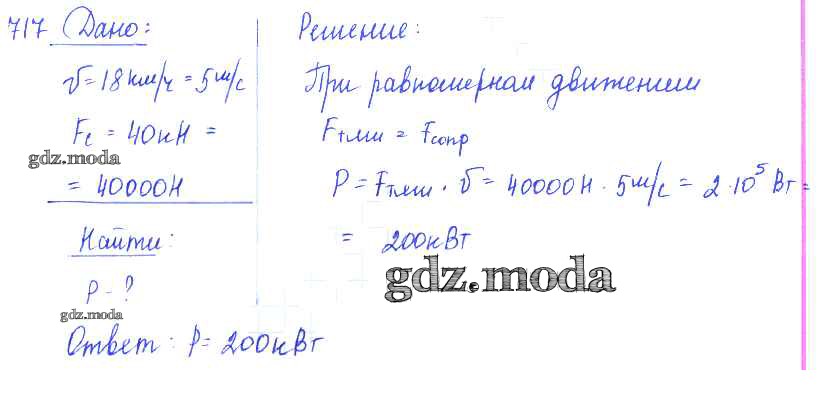 717 Дано:
v = 18 км/ч = 5 м/с
Fc = 40 кН =
gdz.moda
= 40000 Н
Найти:
P - ?
gdz.moda
Решение:
При равномерном движении
Fтяги = Fсопр
P = Fтяги · v = 40000 Н · 5 м/с = 2 · 10⁵ Вт =
= 200 кВт
gdz.moda
Ответ: P = 200 кВт